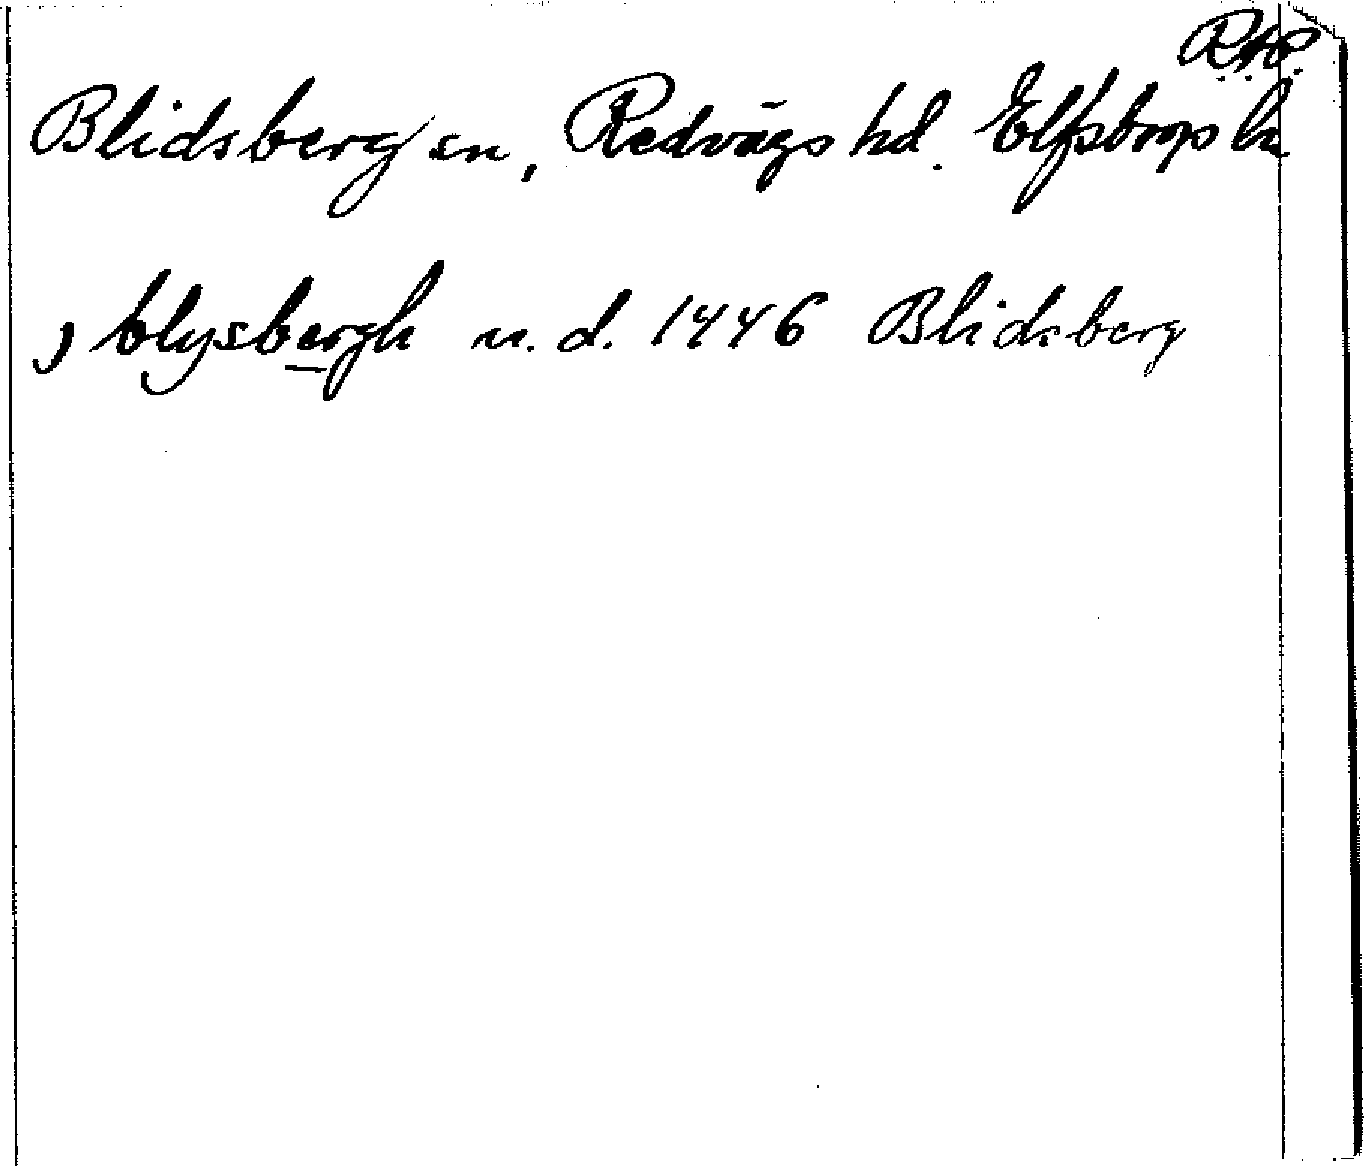 RAP.
Blidsberg sn, Redvägs hd. Elfsborgs län
, blysbergh u. d. 1446 Blidsberg